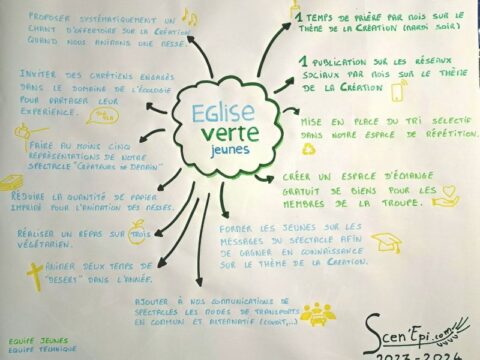 Proposer systématiquement un
chant d'offertoire sur la Création
quand nous animons une messe.
Inviter des chrétiens engagés
dans le domaine de l'écologie
pour partager leur
expérience.
Bla
Bla
Faire au moins cinq
représentations de notre
spectacle "Créateurs de demain"
Réduire la quantité de papier
imprimé pour l'animation des messes.
Réaliser un repas sur trois
végétarien.
Animer deux temps de
"desert" dans l'année.
Ajouter à nos communications de
spectacles les modes de transports
en commun et alternatif (covoit,...)
Eglise
verte
jeunes
1 temps de prière par mois sur le
thème de la Création (mardi soir)
1 publication sur les réseaux
sociaux par mois sur le thème
de la Création.
Mise en place du tri sélectif
dans notre espace de répétition.
Créer un espace d'échange
gratuit de biens pour les
membres de la troupe.
Former les jeunes sur les
messages du spectacle afin
de gagner en connaissance
sur le thème de la Création.
Equipe jeunes
Equipe technique
Scen'Epi.com
2023-2024